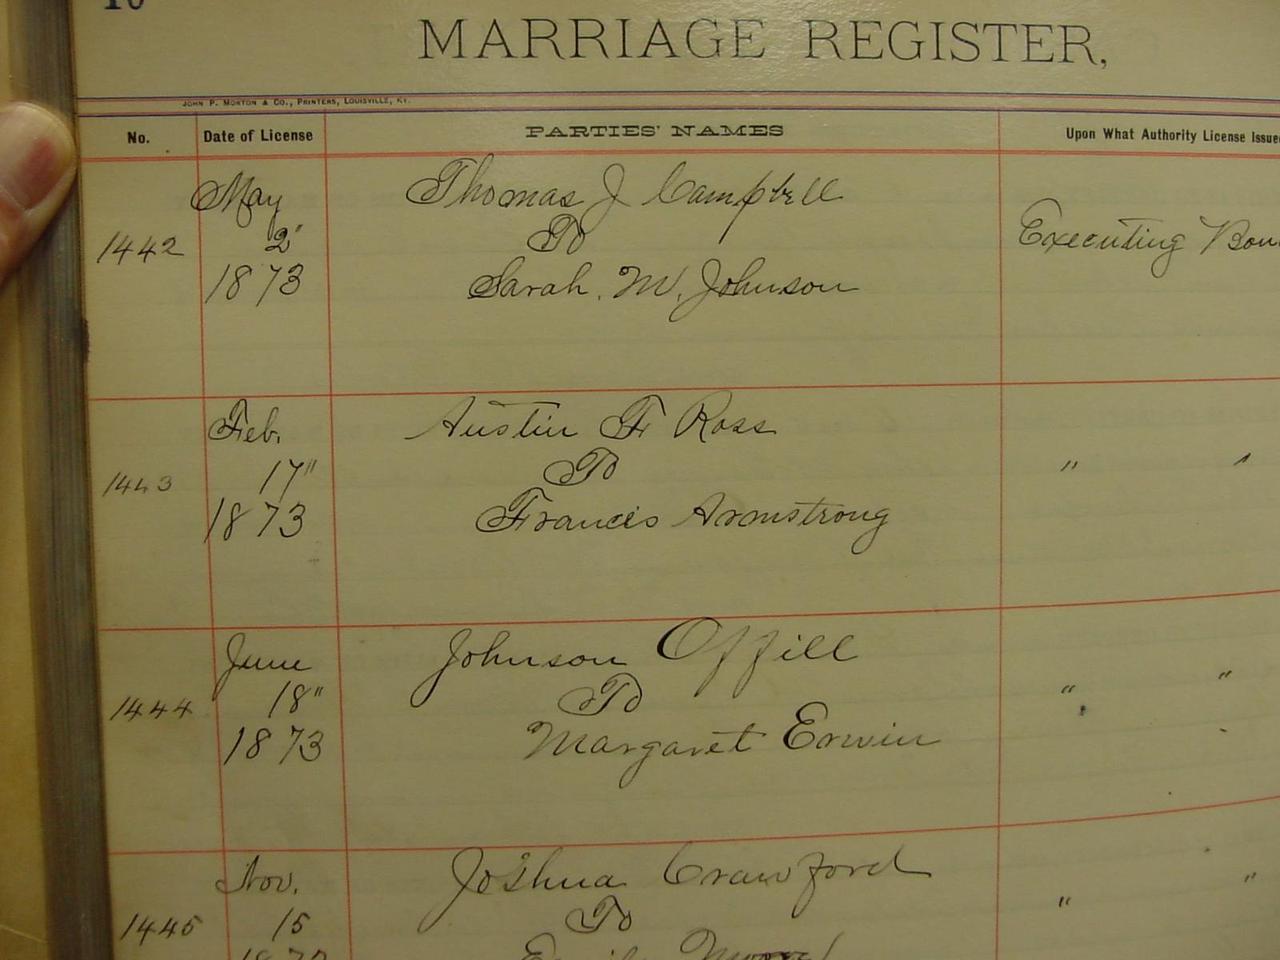 10
MARRIAGE REGISTER,
JOHN P. MORTON & CO., PRINTERS, LOUISVILLE, KY.
No. Date of License PARTIES' NAMES Upon What Authority License Issue
May Thomas J Campbell
1442 2" To Executing Bon
1873 Sarah. M. Johnson
Feb. Austin F Ross
1443 17" To " "
1873 Francis Armstrong
June Johnson Offill
1444 18" To " "
1873 Margaret Erwin
Nov. Joshua Crawford
1445 15 To " "